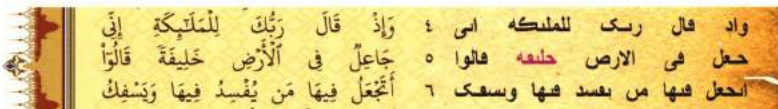 واد قال ربک للملىكه انى ٤ وَإِذْ قَالَ رَبُّكَ لِلْمَلَٰٓئِكَةِ إِنِّى
حعل فى الارص حلىفه قالوا ٥ جَاعِلٌ فِى ٱلْأَرْضِ خَلِيفَةً قَالُوٓا۟
اىحعل فىها مں ىفسد فىها وىسفک ٦ أَتَجْعَلُ فِيهَا مَن يُفْسِدُ فِيهَا وَيَسْفِكُ